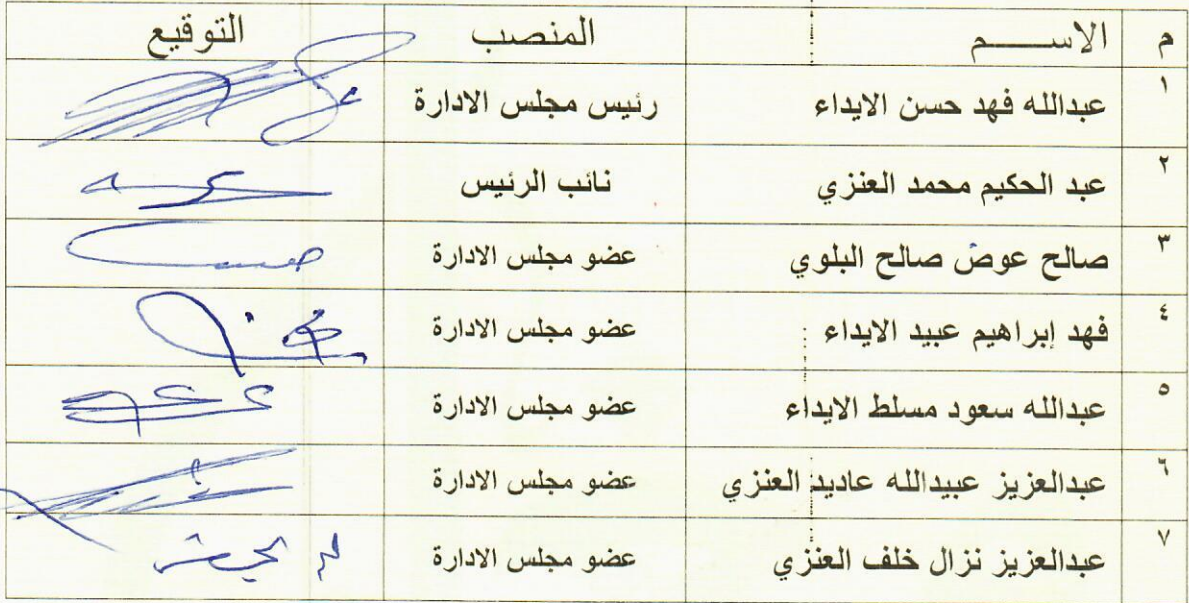 م الاســـــــم المنصب التوقيع
١ عبدالله فهد حسن الايداء رئيس مجلس الادارة
٢ عبد الحكيم محمد العنزي نائب الرئيس
٣ صالح عوض صالح البلوي عضو مجلس الادارة
٤ فهد إبراهيم عبيد الايداء عضو مجلس الادارة
٥ عبدالله سعود مسلط الايداء عضو مجلس الادارة
٦ عبدالعزيز عبيدالله عاديد العنزي عضو مجلس الادارة
٧ عبدالعزيز نزال خلف العنزي عضو مجلس الادارة